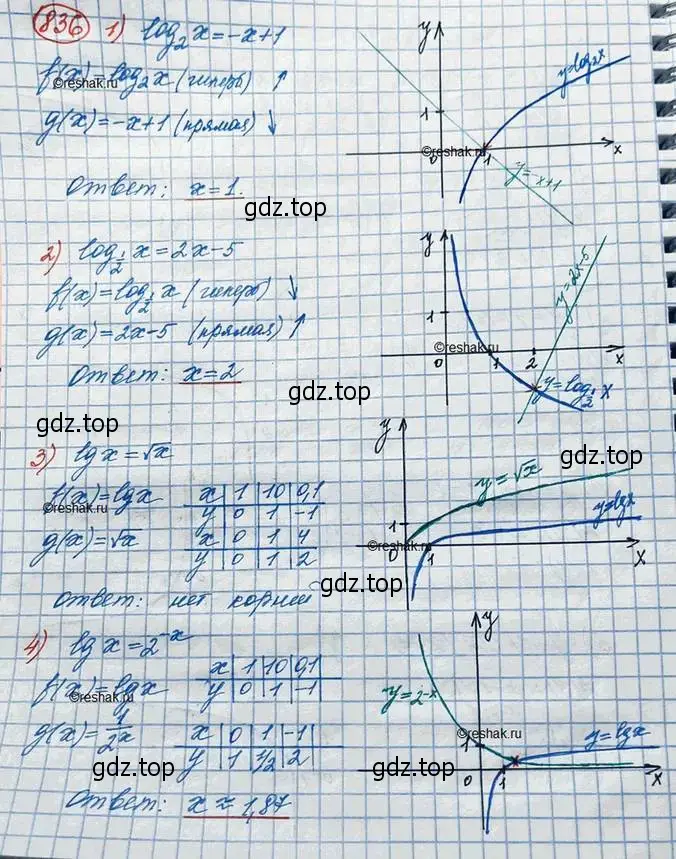 836 1) log₂x = -x+1
f(x) = log₂x (гиперб) ↑
©reshak.ru
g(x) = -x+1 (прямая) ↓
Ответ: x=1.
gdz.top
y
1
0
1
x
y=log₂x
y=-x+1
©reshak.ru
2) log_{1/2} x = 2x-5
f(x) = log_{1/2} x (гиперб) ↓
g(x) = 2x-5 (прямая) ↑
Ответ: x=2
gdz.top
gdz.top
y
1
0
1
2
x
y=2x-5
y=log_{1/2} x
©reshak.ru
3) lg x = √x
f(x) = lg x
x | 1 | 10 | 0,1
y | 0 | 1 | -1
©reshak.ru
g(x) = √x
x | 0 | 1 | 4
y | 0 | 1 | 2
Ответ: нет корней
gdz.top
y
1
0
1
x
y=√x
y=lgx
gdz.top
©reshak.ru
4) lg x = 2^{-x}
f(x) = lg x
x | 1 | 10 | 0,1
y | 0 | 1 | -1
©reshak.ru
g(x) = 1/2ˣ
x | 0 | 1 | -1
y | 1 | 1/2 | 2
gdz.top
Ответ: x ≈ 1,87
y
1
0
1
x
y=2^{-x}
y=lgx
gdz.top